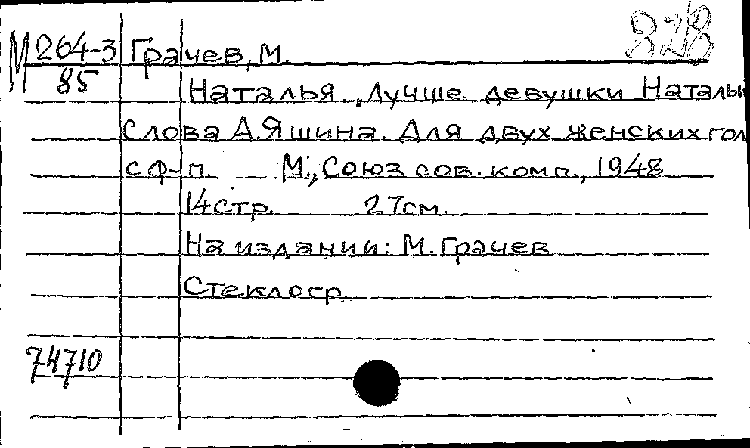 М 264-3 Грачев, М. 828
85
Наталья „Лучше девушки Натальи
Слова А. Яшина. Для двух женских гол
с ф-п. М., Союз сов. комп., 1948
14 стр. 27 см.
На издании: М. Грачев
Стеклогр.
74710